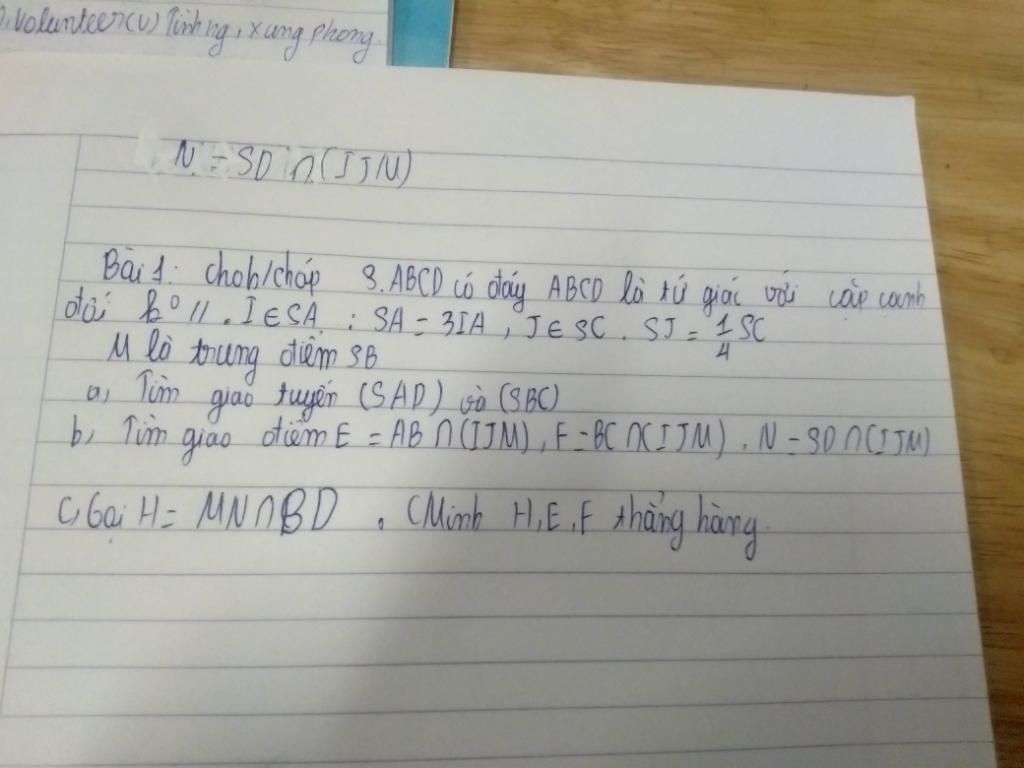 Volunteer(v) Tình ng, xung phong.
N = SD ∩ (IJM)
Bài 1: cho h/chóp S.ABCD có đáy ABCD là tứ giác với cặp cạnh
đối k° //. I ∈ SA : SA = 3IA, J ∈ SC. SJ = 1/4 SC
M là trung điểm SB
a, Tìm giao tuyến (SAD) và (SBC)
b, Tìm giao điểm E = AB ∩ (IJM), F = BC ∩ (IJM). N = SD ∩ (IJM)
c, Gọi H = MN ∩ BD. CMinh H, E, F thẳng hàng.